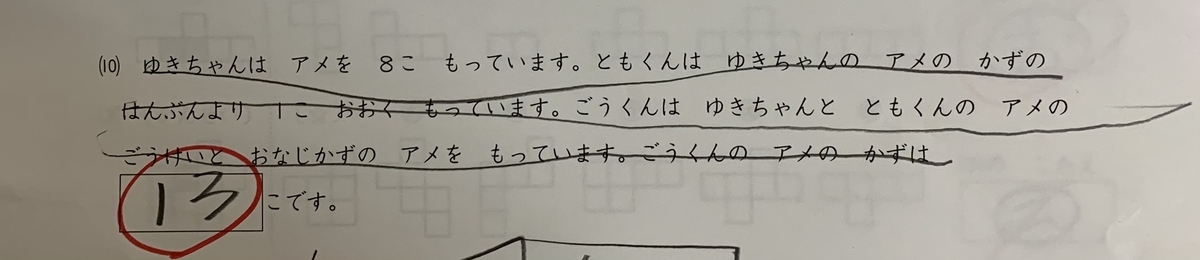 (10) ゆきちゃんは アメを 8こ もっています。ともくんは ゆきちゃんの アメの かずの
はんぶんより 1こ おおく もっています。ごうくんは ゆきちゃんと ともくんの アメの
ごうけいと おなじかずの アメを もっています。ごうくんの アメの かずは
13 こです。